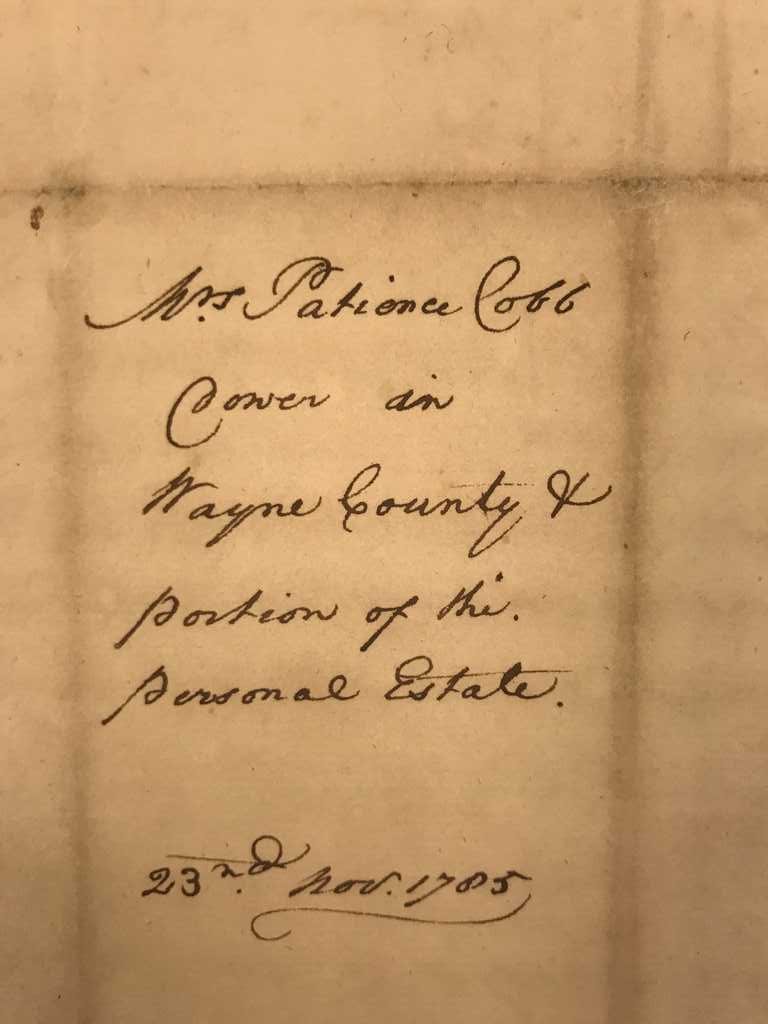 Mrs. Patience Cobb
Dower in
Wayne County &
portion of the.
Personal Estate.
23nd. Nov. 1785